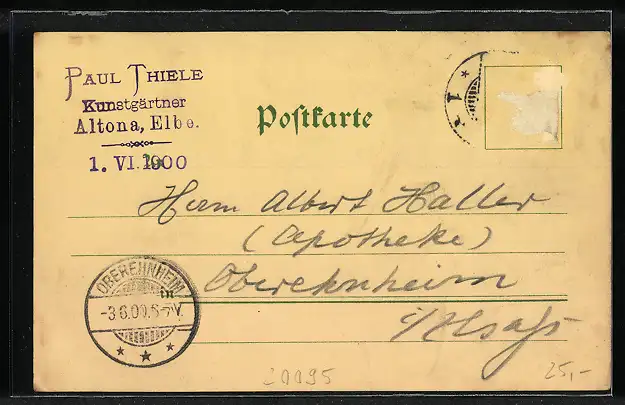 PAUL THIELE
Kunstgärtner
Altona, Elbe.
1. VI. 1900
Poſtkarte
Herrn Albert Haller
(Apotheke)
Oberehnheim
i/Elsaß
OBEREHNHEIM
-3.6.00.6-7V.
20095
25,-